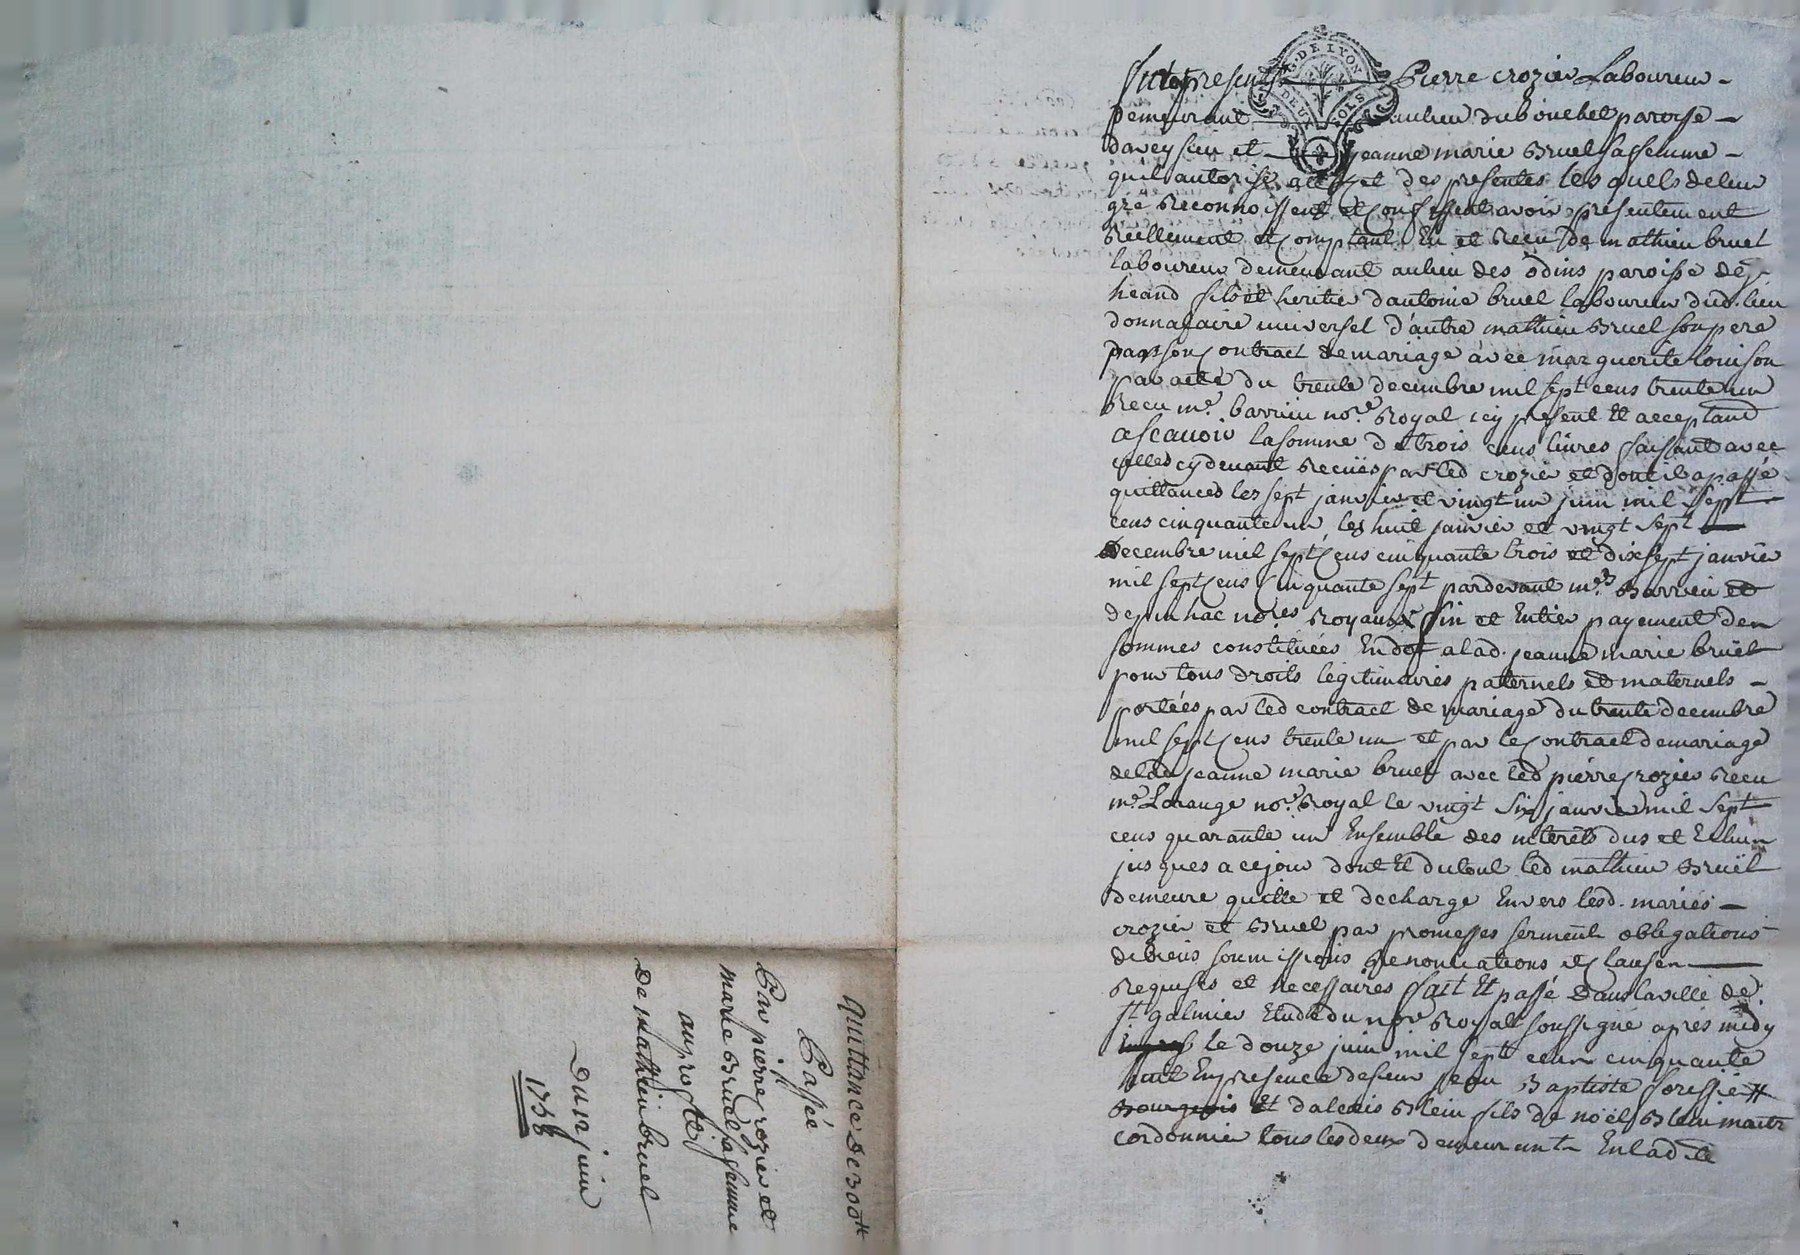 Quittance de 300 ₶
Passée
Par pierre crozier et
marie Bruel sa femme
au profit
De mathieu bruel
Du 12 juin
1758
G. DE LYON
DEUX SOLS
Furent presents Pierre crozier Laboureur
Demeurant au lieu du bouchet paroisse
daveysieu et jeanne marie Bruel sa femme
quil autorise a leffet des presentes les quels de leur
gré Reconnoissent et confessent avoir presentement
Reellement et comptant Eu et Reçu de mathieu bruel
laboureur demeurant au lieu des odins paroisse de
fils et heritier dantoine bruel laboureur dud. lieu
donnataire universel d'autre mathieu Bruel son pere
par son contract de mariage avec marguerite louison
par acte du trente decembre mil sept cens trente un
Recu me. barrieu nore. Royal icy present et acceptant
a scavoir la somme de trois cens livres faisant avec
celles cy devant Recuës par led crozier et dont il a passé
quittances les sept janvier et vingt un juin mil sept
cens cinquante un les huit janvier et vingt sept
Decembre mil sept cens cinquante trois et dix sept janvier
mil sept cens Cinquante sept pardevant mes. Barrieu et
depinhac nores Royaux fin et Entier payement des
sommes constituées En dot a lad. jeanne marie bruel
pour tous droits legitimaires paternels et maternels
portées par led contract de mariage du trente decembre
mil sept cens trente un et par le contract de mariage
de lad jeanne marie bruel avec led pierre crozier Recu
me. Lorange nore. Royal le vingt six janvier mil sept
cens quarante un Ensemble des interets dus et Echus
jusques a ce jour dont Et du tout led mathieu Bruel
demeure quitte et decharge Envers lesd. mariés
crozier et Bruel par promesses serment obligations
de biens soumissions Renonciations et clauses
Requises et necessaires fait Et passé Dans la ville de
st galmier Etude du nore Royal soussigné après midy
le douze juin mil sept cens cinquante
huit En presence de sieur jean Baptiste forissier
Bourgeois Et dalexis Blein fils de noël Blein maitre
cordonnier tous les deux demeurants En lad. ville